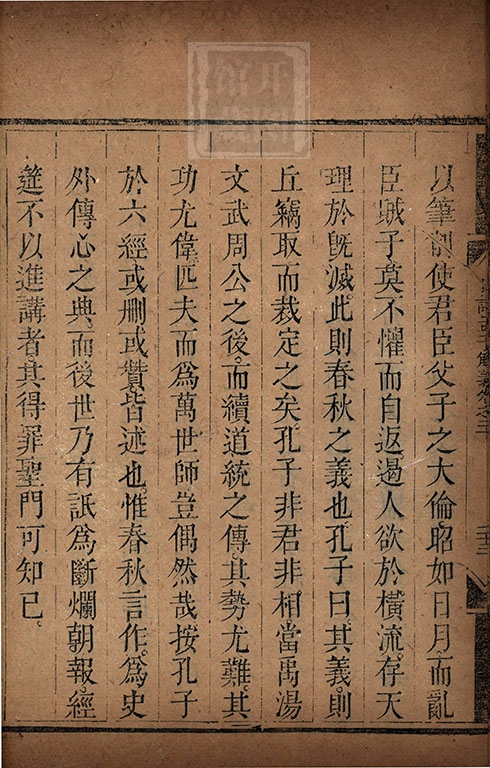 以筆削使君臣父子之大倫昭如日月而亂
臣賊子莫不懼而自返遏人欲於橫流存天
理於旣滅此則春秋之義也孔子曰其義則
丘竊取而裁定之矣孔子非君非相當禹湯
文武周公之後而續道統之傳其勢尤難其
功尤偉匹夫而爲萬世師豈偶然哉按孔子
於六經或刪或贊皆述也惟春秋言作爲史
外傳心之典而後世乃有詆爲斷爛朝報經
筵不以進講者其得罪聖門可知已